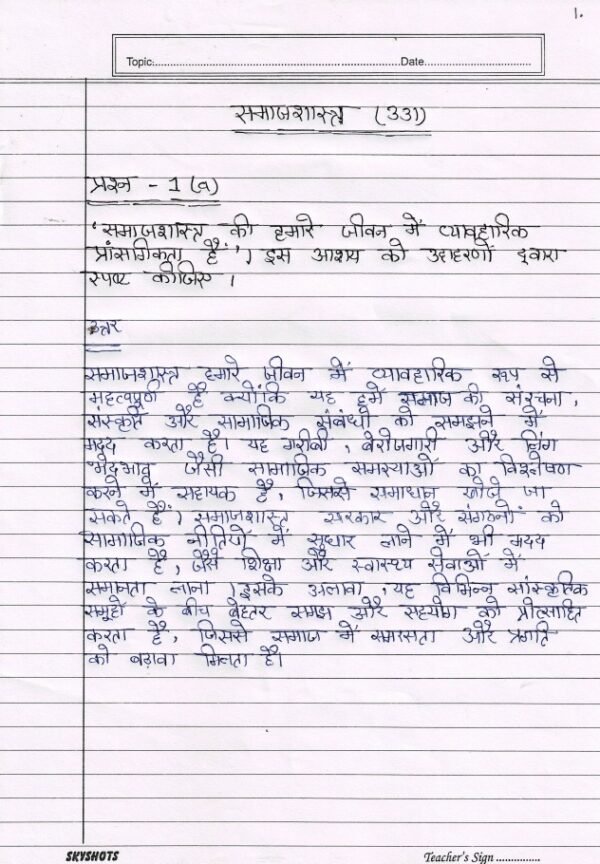 1.
Topic:..........Date..........
समाजशास्त्र (331)
प्रश्न - 1 (a)
'समाजशास्त्र की हमारे जीवन में व्यावहारिक
प्रांसगिकता है'। इस आशय को उदाहरणों द्वारा
स्पष्ट कीजिए ।
उत्तर
समाजशास्त्र हमारे जीवन में व्यावहारिक रूप से
महत्वपूर्ण है क्योंकि यह हमें समाज की संरचना,
संस्कृति और सामाजिक संबंधों को समझने में
मदद करता है। यह गरीबी, बेरोजगारी और लिंग
भेदभाव जैसी सामाजिक समस्याओं का विश्लेषण
करने में सहायक है, जिससे समाधान खोजे जा
सकते हैं। समाजशास्त्र सरकार और संगठनों को
सामाजिक नीतियों में सुधार लाने में भी मदद
करता है, जैसे शिक्षा और स्वास्थ्य सेवाओं में
समानता लाना। इसके अलावा, यह विभिन्न सांस्कृतिक
समूहों के बीच बेहतर समझ और सहयोग को प्रोत्साहित
करता है, जिससे समाज में समरसता और प्रगति
को बढ़ावा मिलता है।
SKYSHOTS Teacher's Sign ...............